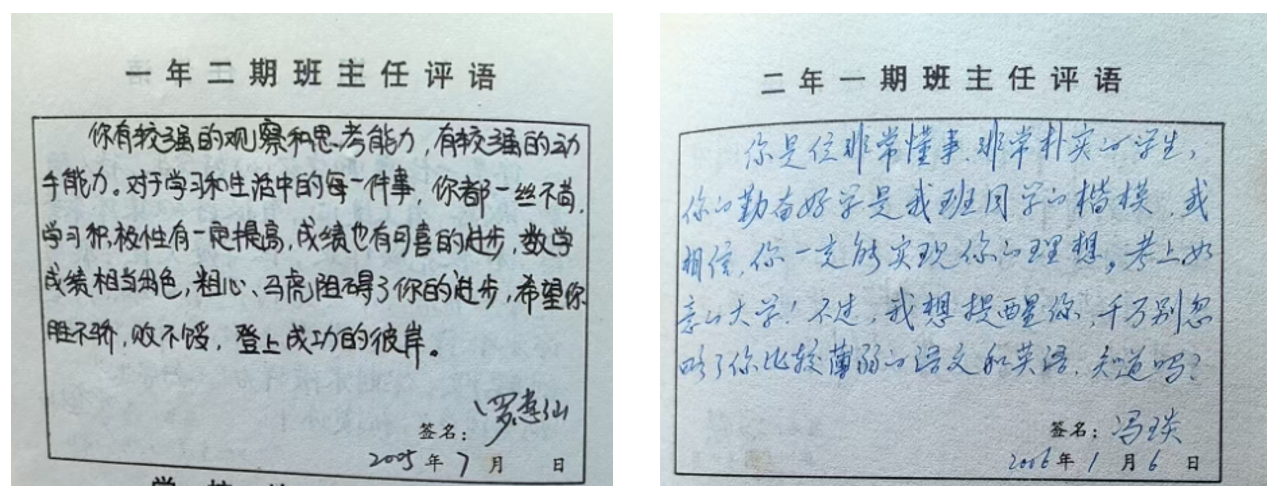 一年二期班主任评语
你有较强的观察和思考能力，有较强的动
手能力。对于学习和生活中的每一件事，你都一丝不苟，
学习积极性有一定提高，成绩也有可喜的进步，数学
成绩相当出色，粗心、马虎阻碍了你的进步，希望你
胜不骄，败不馁，登上成功的彼岸。
签名：
2005年7月 日
二年一期班主任评语
你是位非常懂事、非常朴实的学生，
你的勤奋好学是我班同学的楷模，我
相信，你一定能实现你的理想，考上如
意的大学！不过，我想提醒你，千万别忽
略了你比较薄弱的语文和英语，知道吗？
签名：冯琰
2006年1月6日